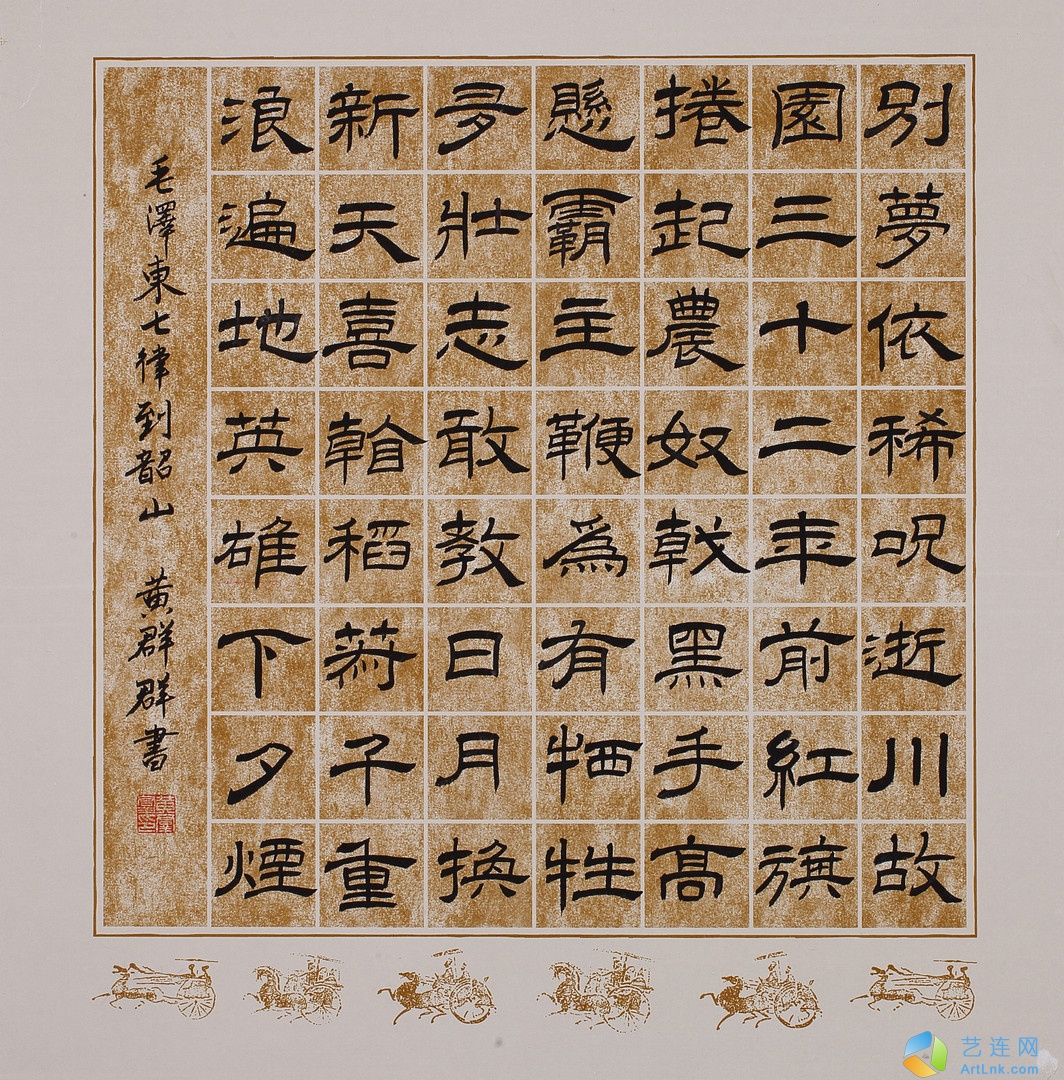 別夢依稀呪逝川故
園三十二年前紅旗
捲起農奴戟黑手高
懸霸主鞭爲有牺牲
多壯志敢教日月換
新天喜看稻菽千重
浪遍地英雄下夕煙
毛澤東七律到韶山 黄群群書
艺连网
ArtLnk.com